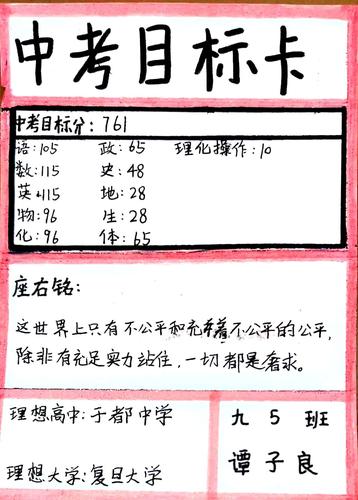 中考目标卡
中考目标分：761
语:105 政:65 理化操作:10
数:115 史:48
英:115 地:28
物:96 生:28
化:96 体:65
座右铭:
这世界上只有不公平和充斥着不公平的公平,
除非有充足实力站住，一切都是奢求。
理想高中:于都中学
九 5 班
理想大学:复旦大学
谭子良